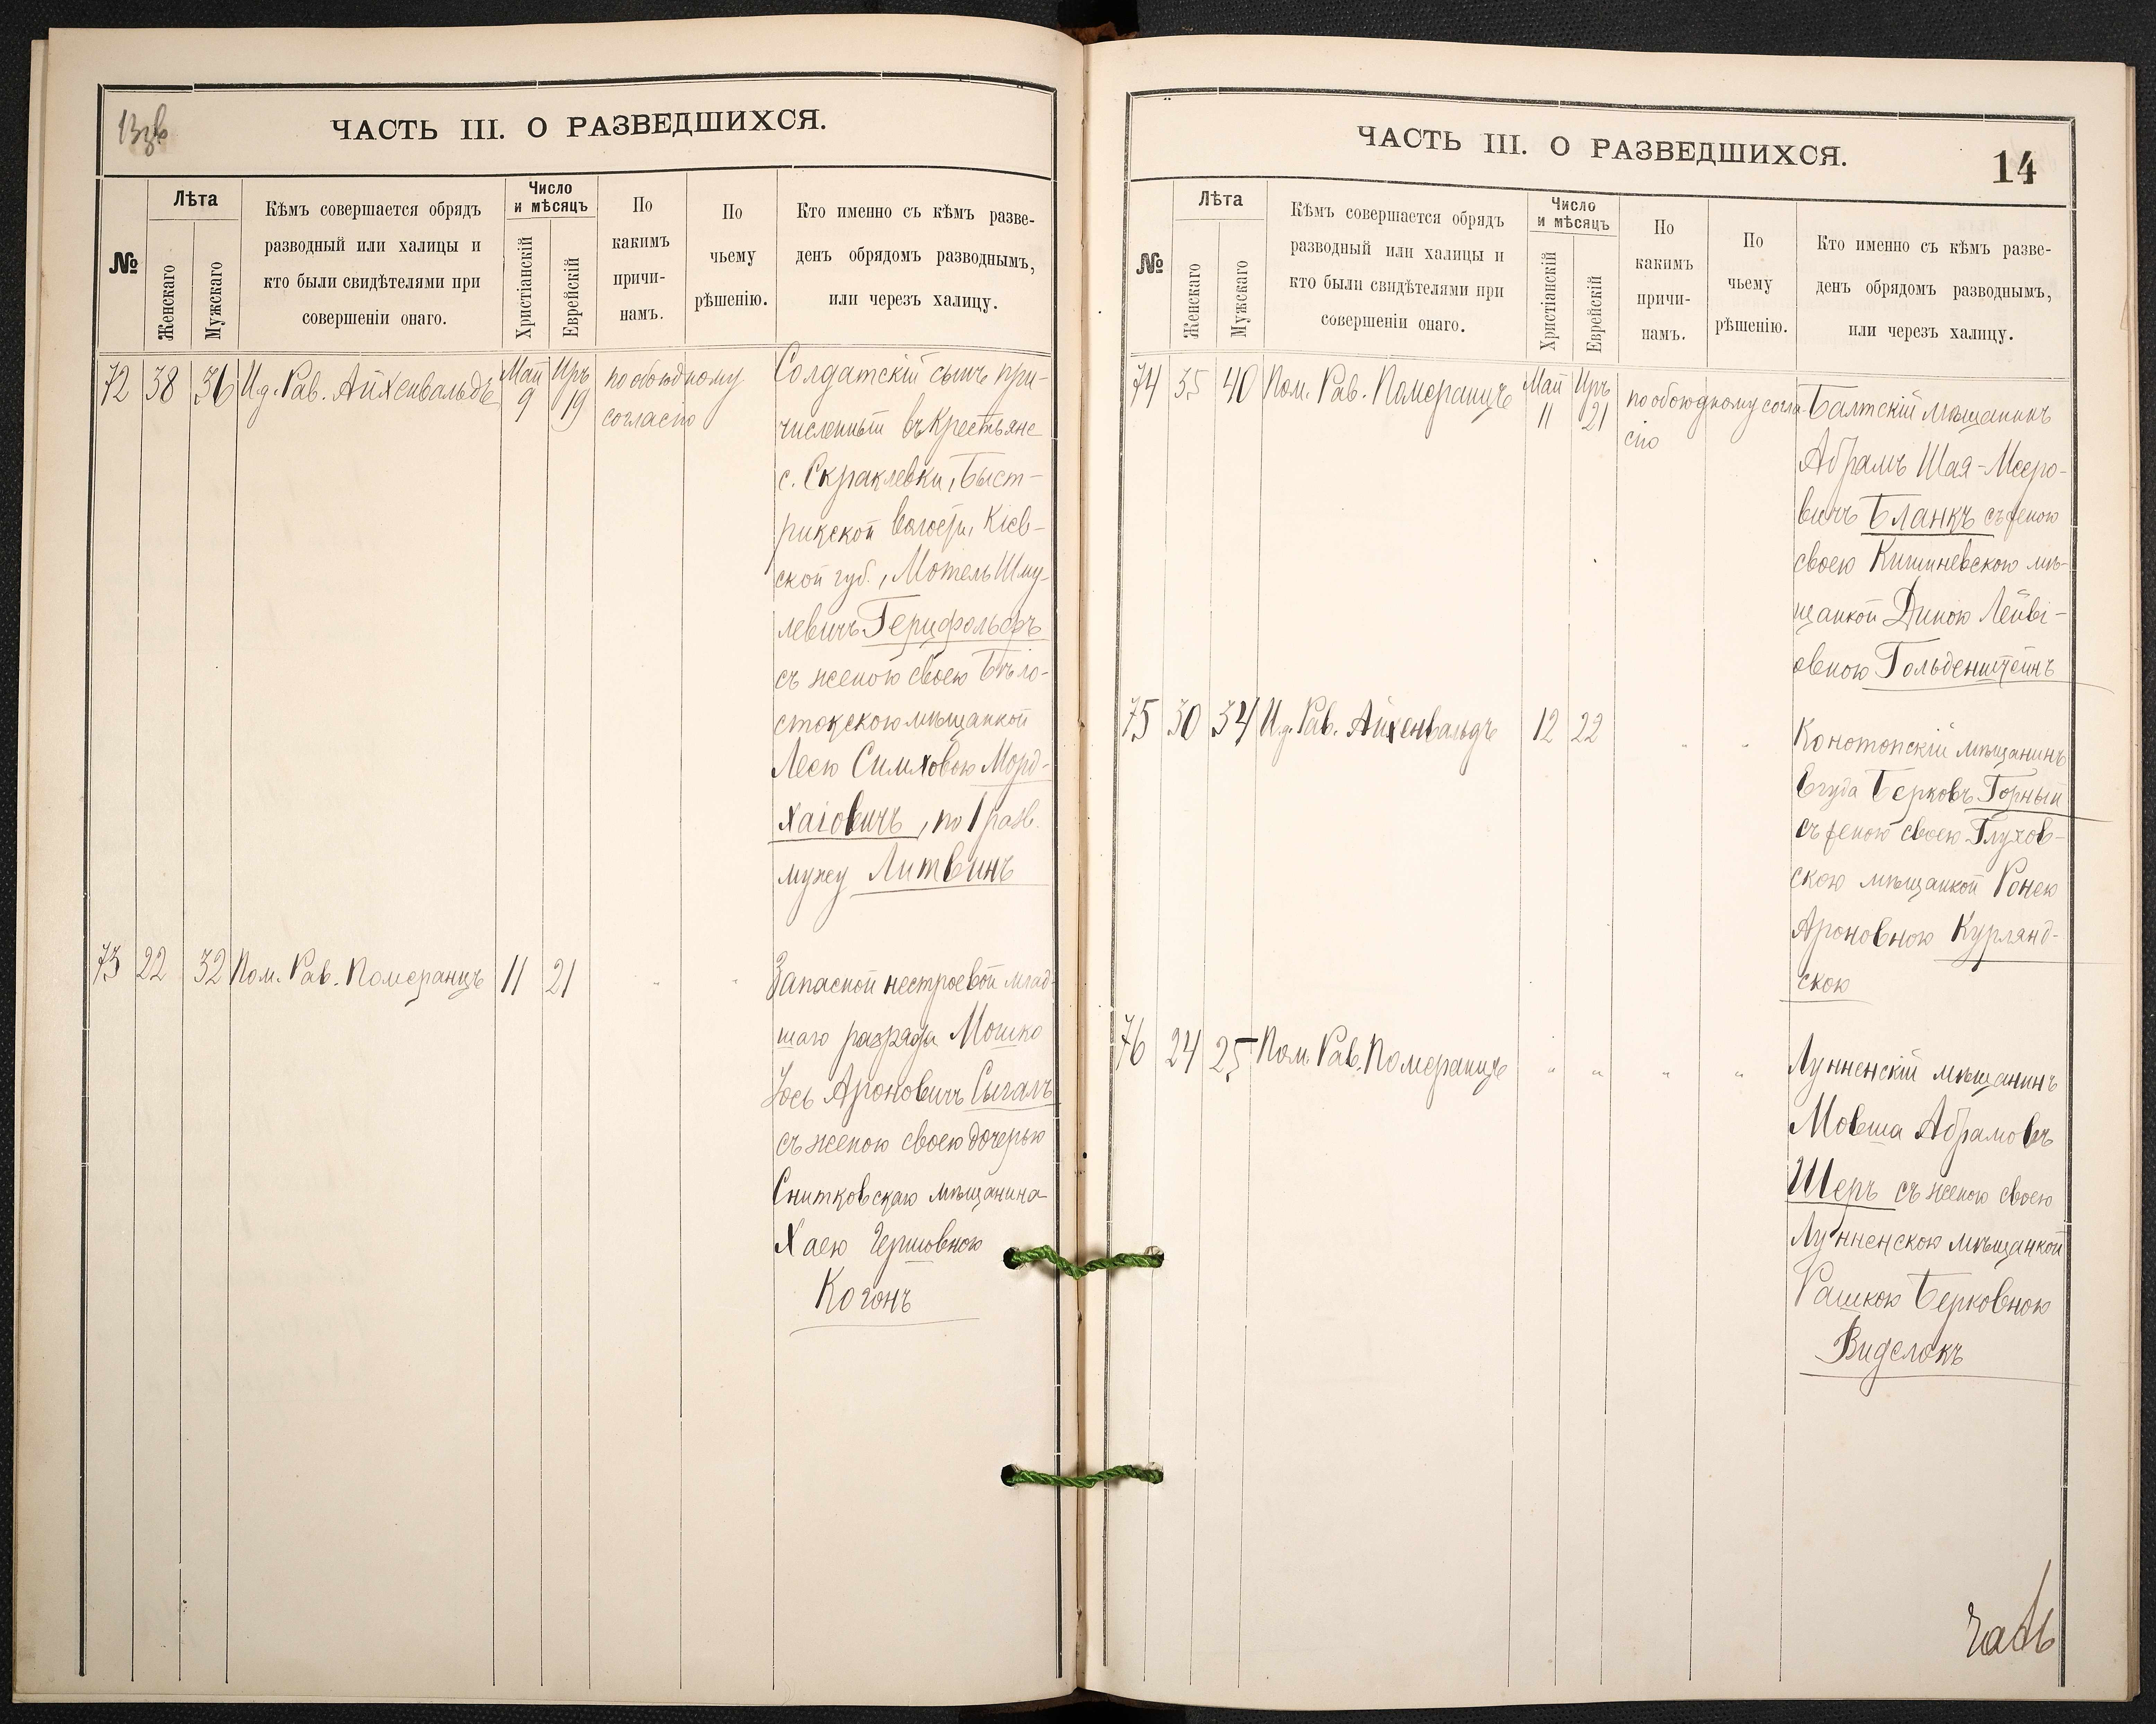 13об
ЧАСТЬ III. О РАЗВЕДШИХСЯ.
№
Лѣта
Женскаго
Мужскаго
Кѣмъ совершается обрядъ
разводный или халицы и
кто были свидѣтелями при
совершеніи онаго.
Число
и мѣсяцъ
Христіанскій
Еврейскій
По
какимъ
причи-
намъ.
По
чьему
рѣшенію.
Кто именно съ кѣмъ разве-
денъ обрядомъ разводнымъ,
или черезъ халицу.
72 38 36 И.д. Рав. Айхенвальдъ Май 9 Иръ 19 по обоюдному
согласію
Солдатскій сынъ при-
численный въ крестьяне
с. Скраклевки, Быст-
рикской волости, Кіев-
ской губ., Мотель Шму-
левичъ Герцфольфъ
съ женою своею Бѣло-
стокскою мѣщанкой
Леею Симховою Морд-
хаіовичъ, по 1 разв.
мужу Литвинъ
73 22 32 Пом. Рав. Померанцъ 11 21 " "
Запасной нестроевой млад-
шаго разряда Мошко
Іось Ароновичъ Сыгалъ
съ женою своею дочерью
Снитковскаго мѣщанина
Хаею Гершовною
Когонъ
ЧАСТЬ III. О РАЗВЕДШИХСЯ.
14
№
Лѣта
Женскаго
Мужскаго
Кѣмъ совершается обрядъ
разводный или халицы и
кто были свидѣтелями при
совершеніи онаго.
Число
и мѣсяцъ
Христіанскій
Еврейскій
По
какимъ
причи-
намъ.
По
чьему
рѣшенію.
Кто именно съ кѣмъ разве-
денъ обрядомъ разводнымъ,
или черезъ халицу.
74 35 40 Пом. Рав. Померанцъ Май 11 Иръ 21 по обоюдному согла-
сію
Балтскій мѣщанинъ
Абрамъ Шая-Мееро-
вичъ Бланкъ съ женою
своею Кишиневскою мѣ-
щанкой Диною Лейві-
овною Гольденштейнъ
75 30 34 И.д. Рав. Айхенвальдъ 12 22 " "
Конотопскій мѣщанинъ
Егуда Берковъ Горный
съ женою своею Глухов-
скою мѣщанкой Ронею
Ароновною Курлянд-
скою
76 24 25 Пом. Рав. Померанцъ " " " "
Лунненскій мѣщанинъ
Мовша Абрамовъ
Шеръ съ женою своею
Лунненскою мѣщанкой
Рашкою Берковною
Виделокъ